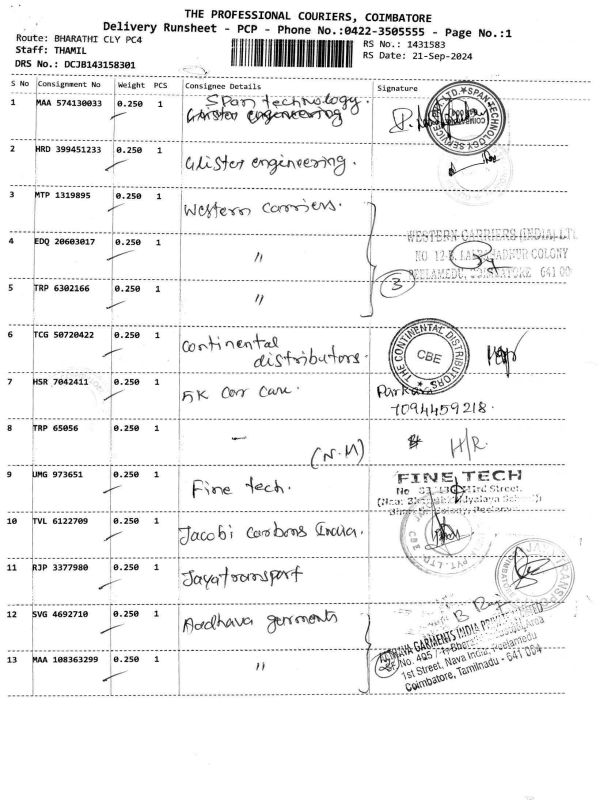 THE PROFESSIONAL COURIERS, COIMBATORE
Delivery Runsheet - PCP - Phone No.:0422-3505555 - Page No.:1
Route: BHARATHI CLY PC4
RS No.: 1431583
Staff: THAMIL
RS Date: 21-Sep-2024
DRS No.: DCJB143158301
S No Consignment No Weight PCS Consignee Details Signature
1 MAA 574130033 0.250 1 Span technology.
Glister engineering
2 HRD 399451233 0.250 1 Glister engineering.
3 MTP 1319895 0.250 1 Western Carriers.
WESTERN CARRIERS (INDIA) LT
4 EDQ 20603017 0.250 1 "
NO 12-B, LALBAHADHUR COLONY
PEELAMEDU, COIMBATORE 641 00
5 TRP 6302166 0.250 1 " 3
6 TCG 50720422 0.250 1 Continental distributors.
THE CONTINENTAL DISTRIBUTORS
CBE
7 HSR 7042411 0.250 1 5K Car Care.
7094459218.
8 TRP 65056 0.250 1 - (N.M) H/R.
9 UMG 973651 0.250 1 Fine tech.
FINE TECH
10 TVL 6122709 0.250 1 Jacobi Carbons India.
11 RJP 3377980 0.250 1 Jayatransport
12 SVG 4692710 0.250 1 Aadhava garments
13 MAA 108363299 0.250 1 "
GARMENTS INDIA
1st Street, Nava India, Peelamedu
Coimbatore, Tamilnadu - 641 004